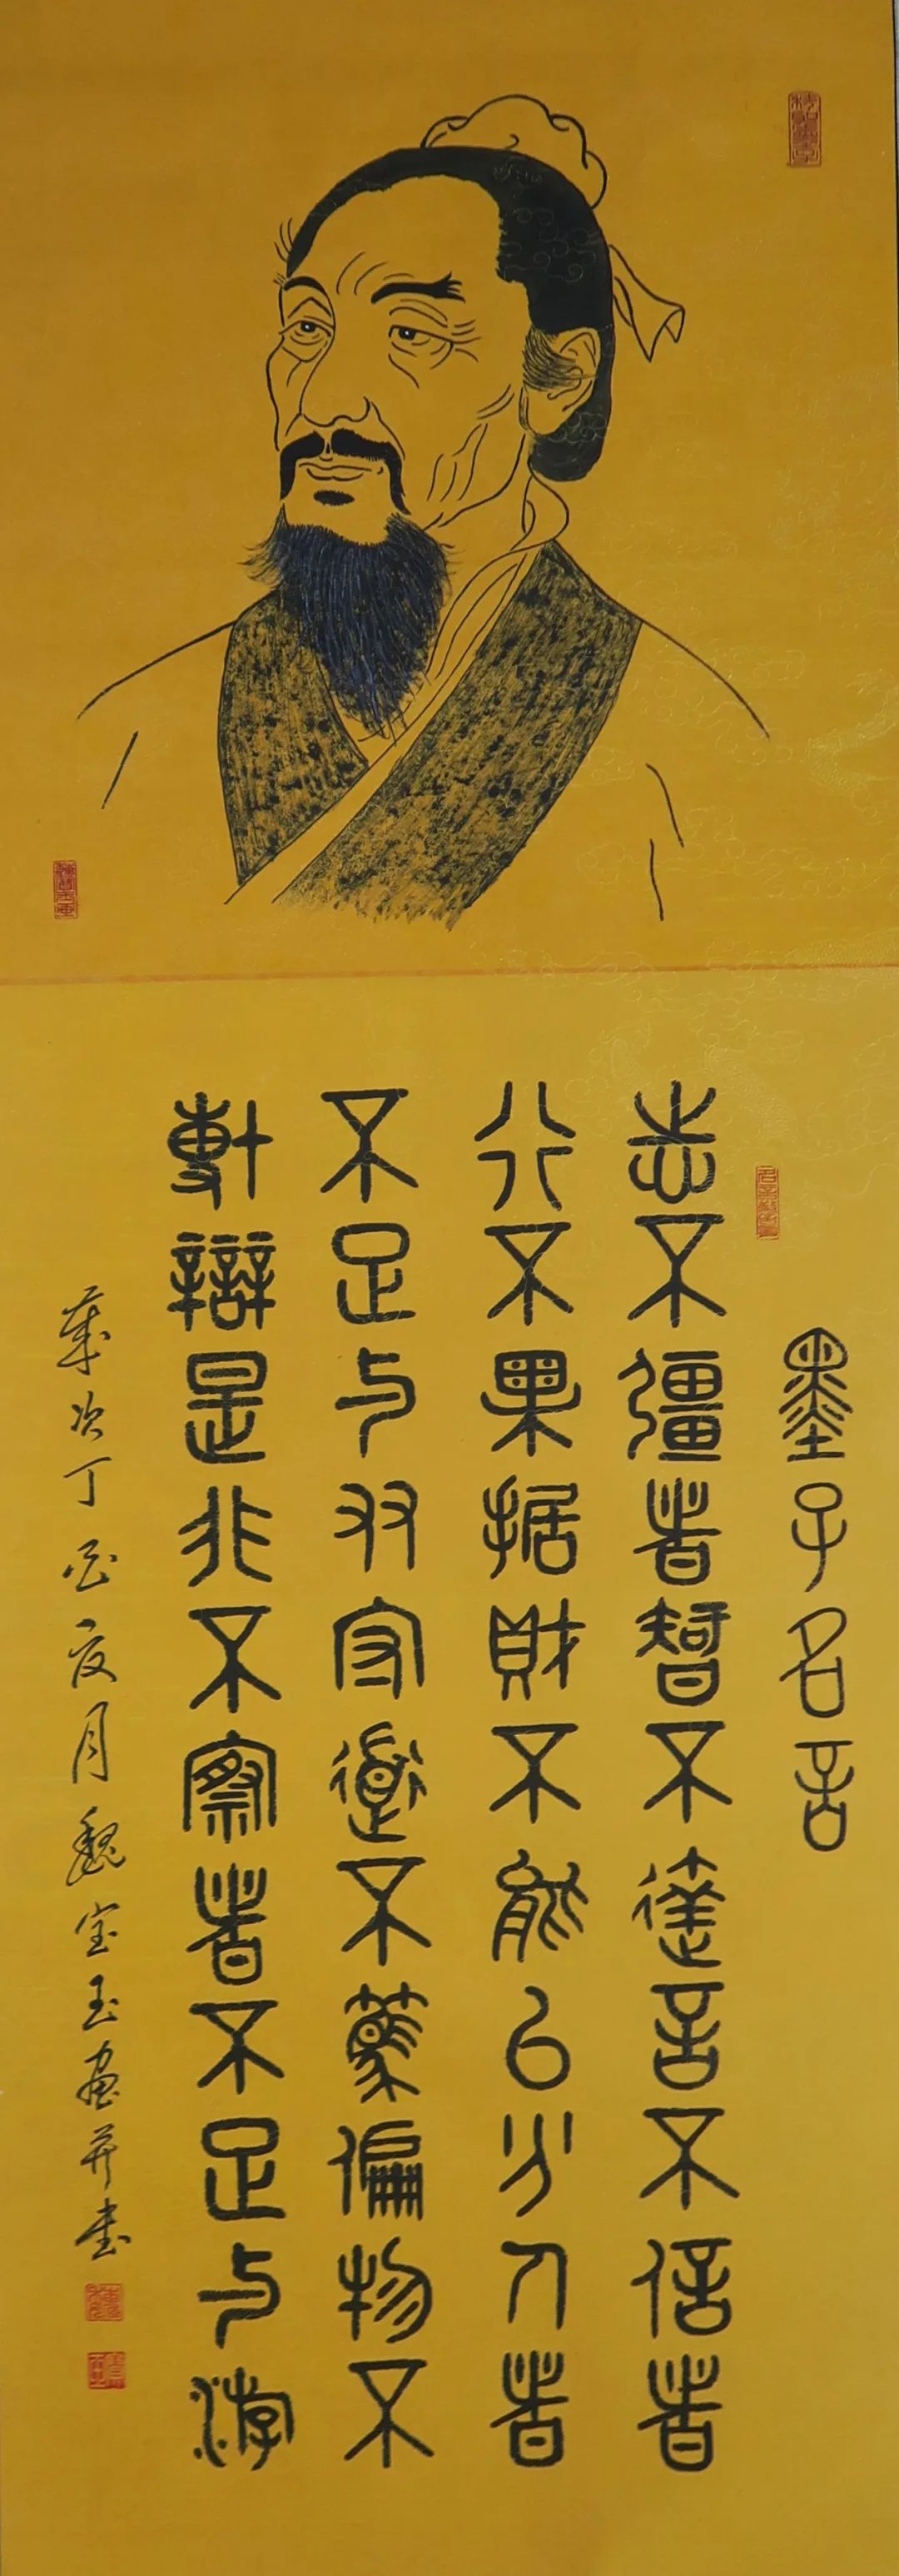 墨子名言
志不彊者智不達言不信者
行不果据財不能以分人者
不足与友守道不篤偏物不
博辯是非不察者不足与游
歲次丁酉夏月魏宝玉画并书